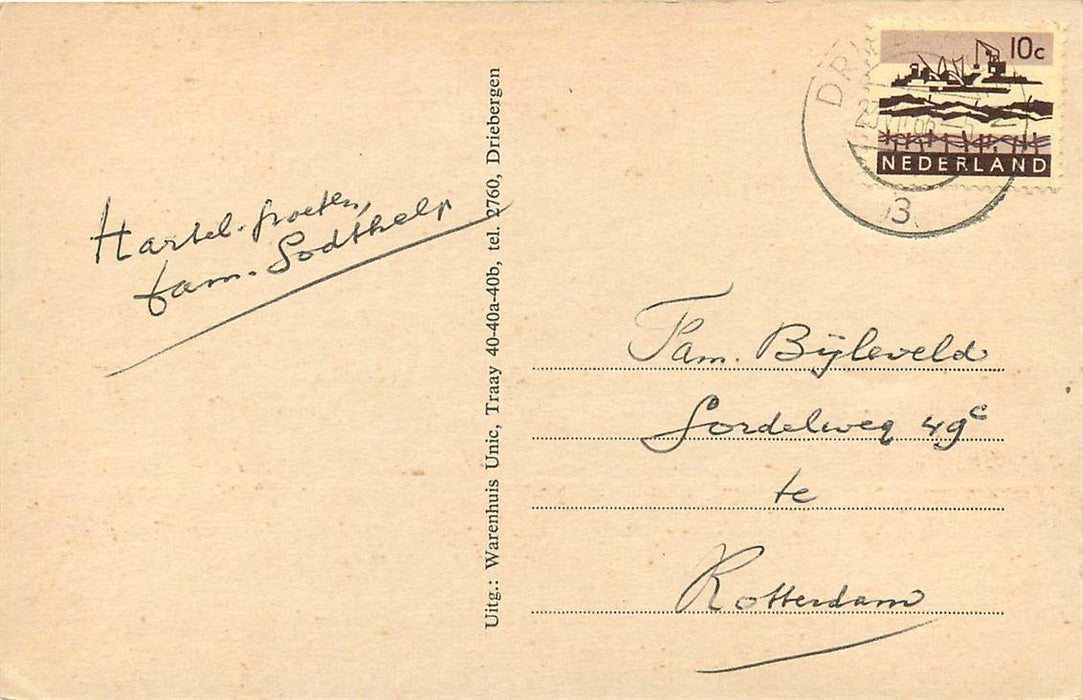 Hartel. groeten,
fam.
Uitg.: Warenhuis Unic, Traay 40-40a-40b, tel. 2760, Driebergen
10c
NEDERLAND
3
Fam. Bijleveld
Gordelweg 49c
te
Rotterdam